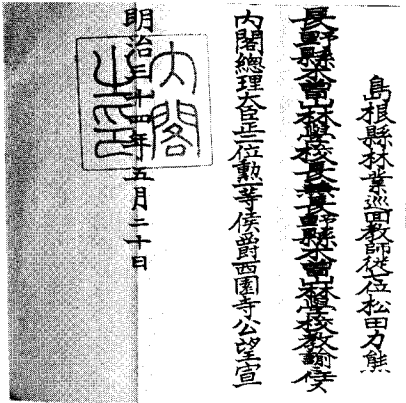 島根縣林業巡回教師從七位松田力熊
長野縣木曾山林學校長兼長野縣木曾山林學校教諭ニ任ス
内閣總理大臣正二位勲一等侯爵西園寺公望宣
明治三十四年五月二十日
内閣
之印